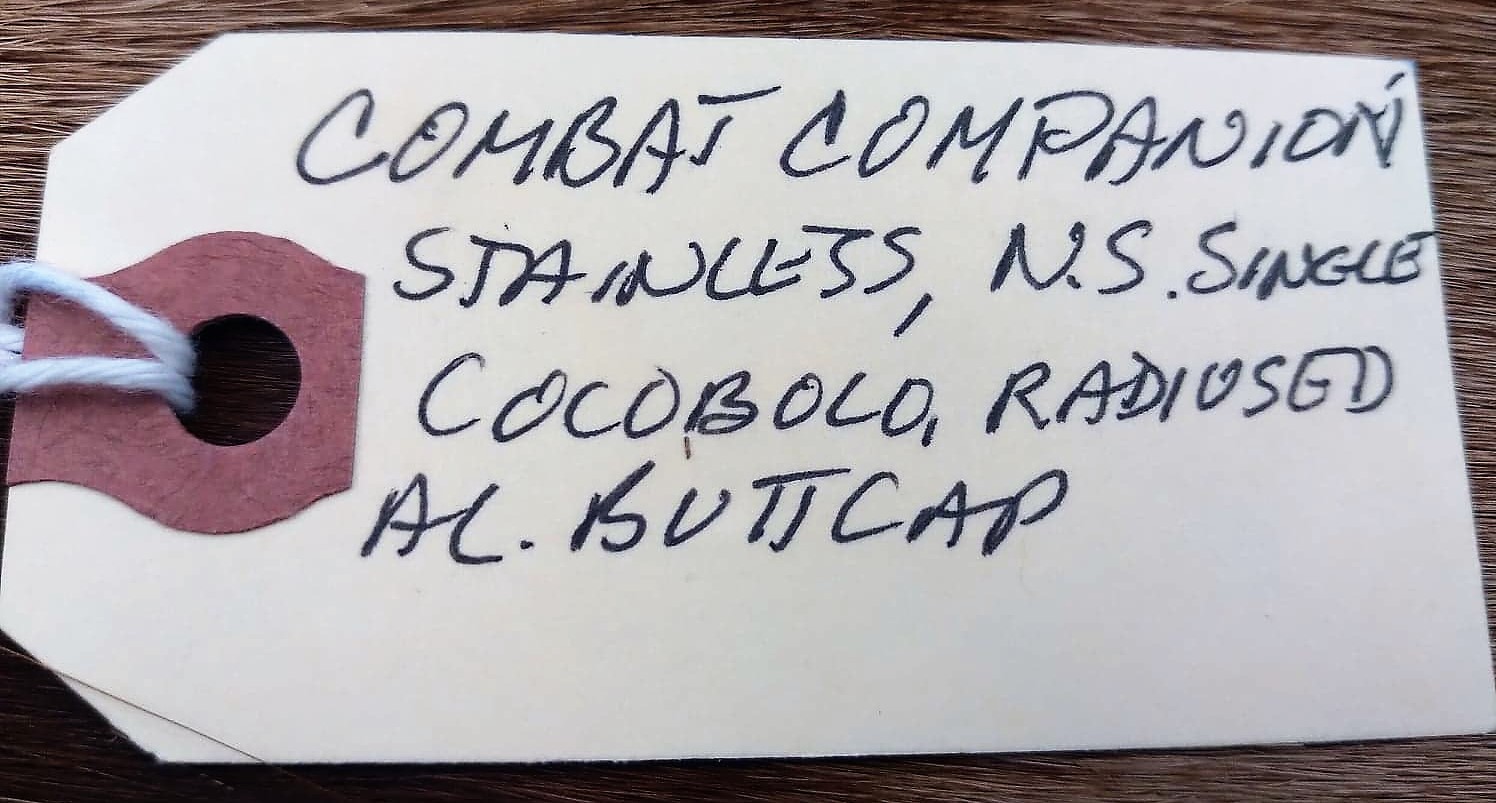 COMBAT COMPANION
STAINLESS, N.S. SINGLE
COCOBOLO, RADIUSED
AL. BUTTCAP